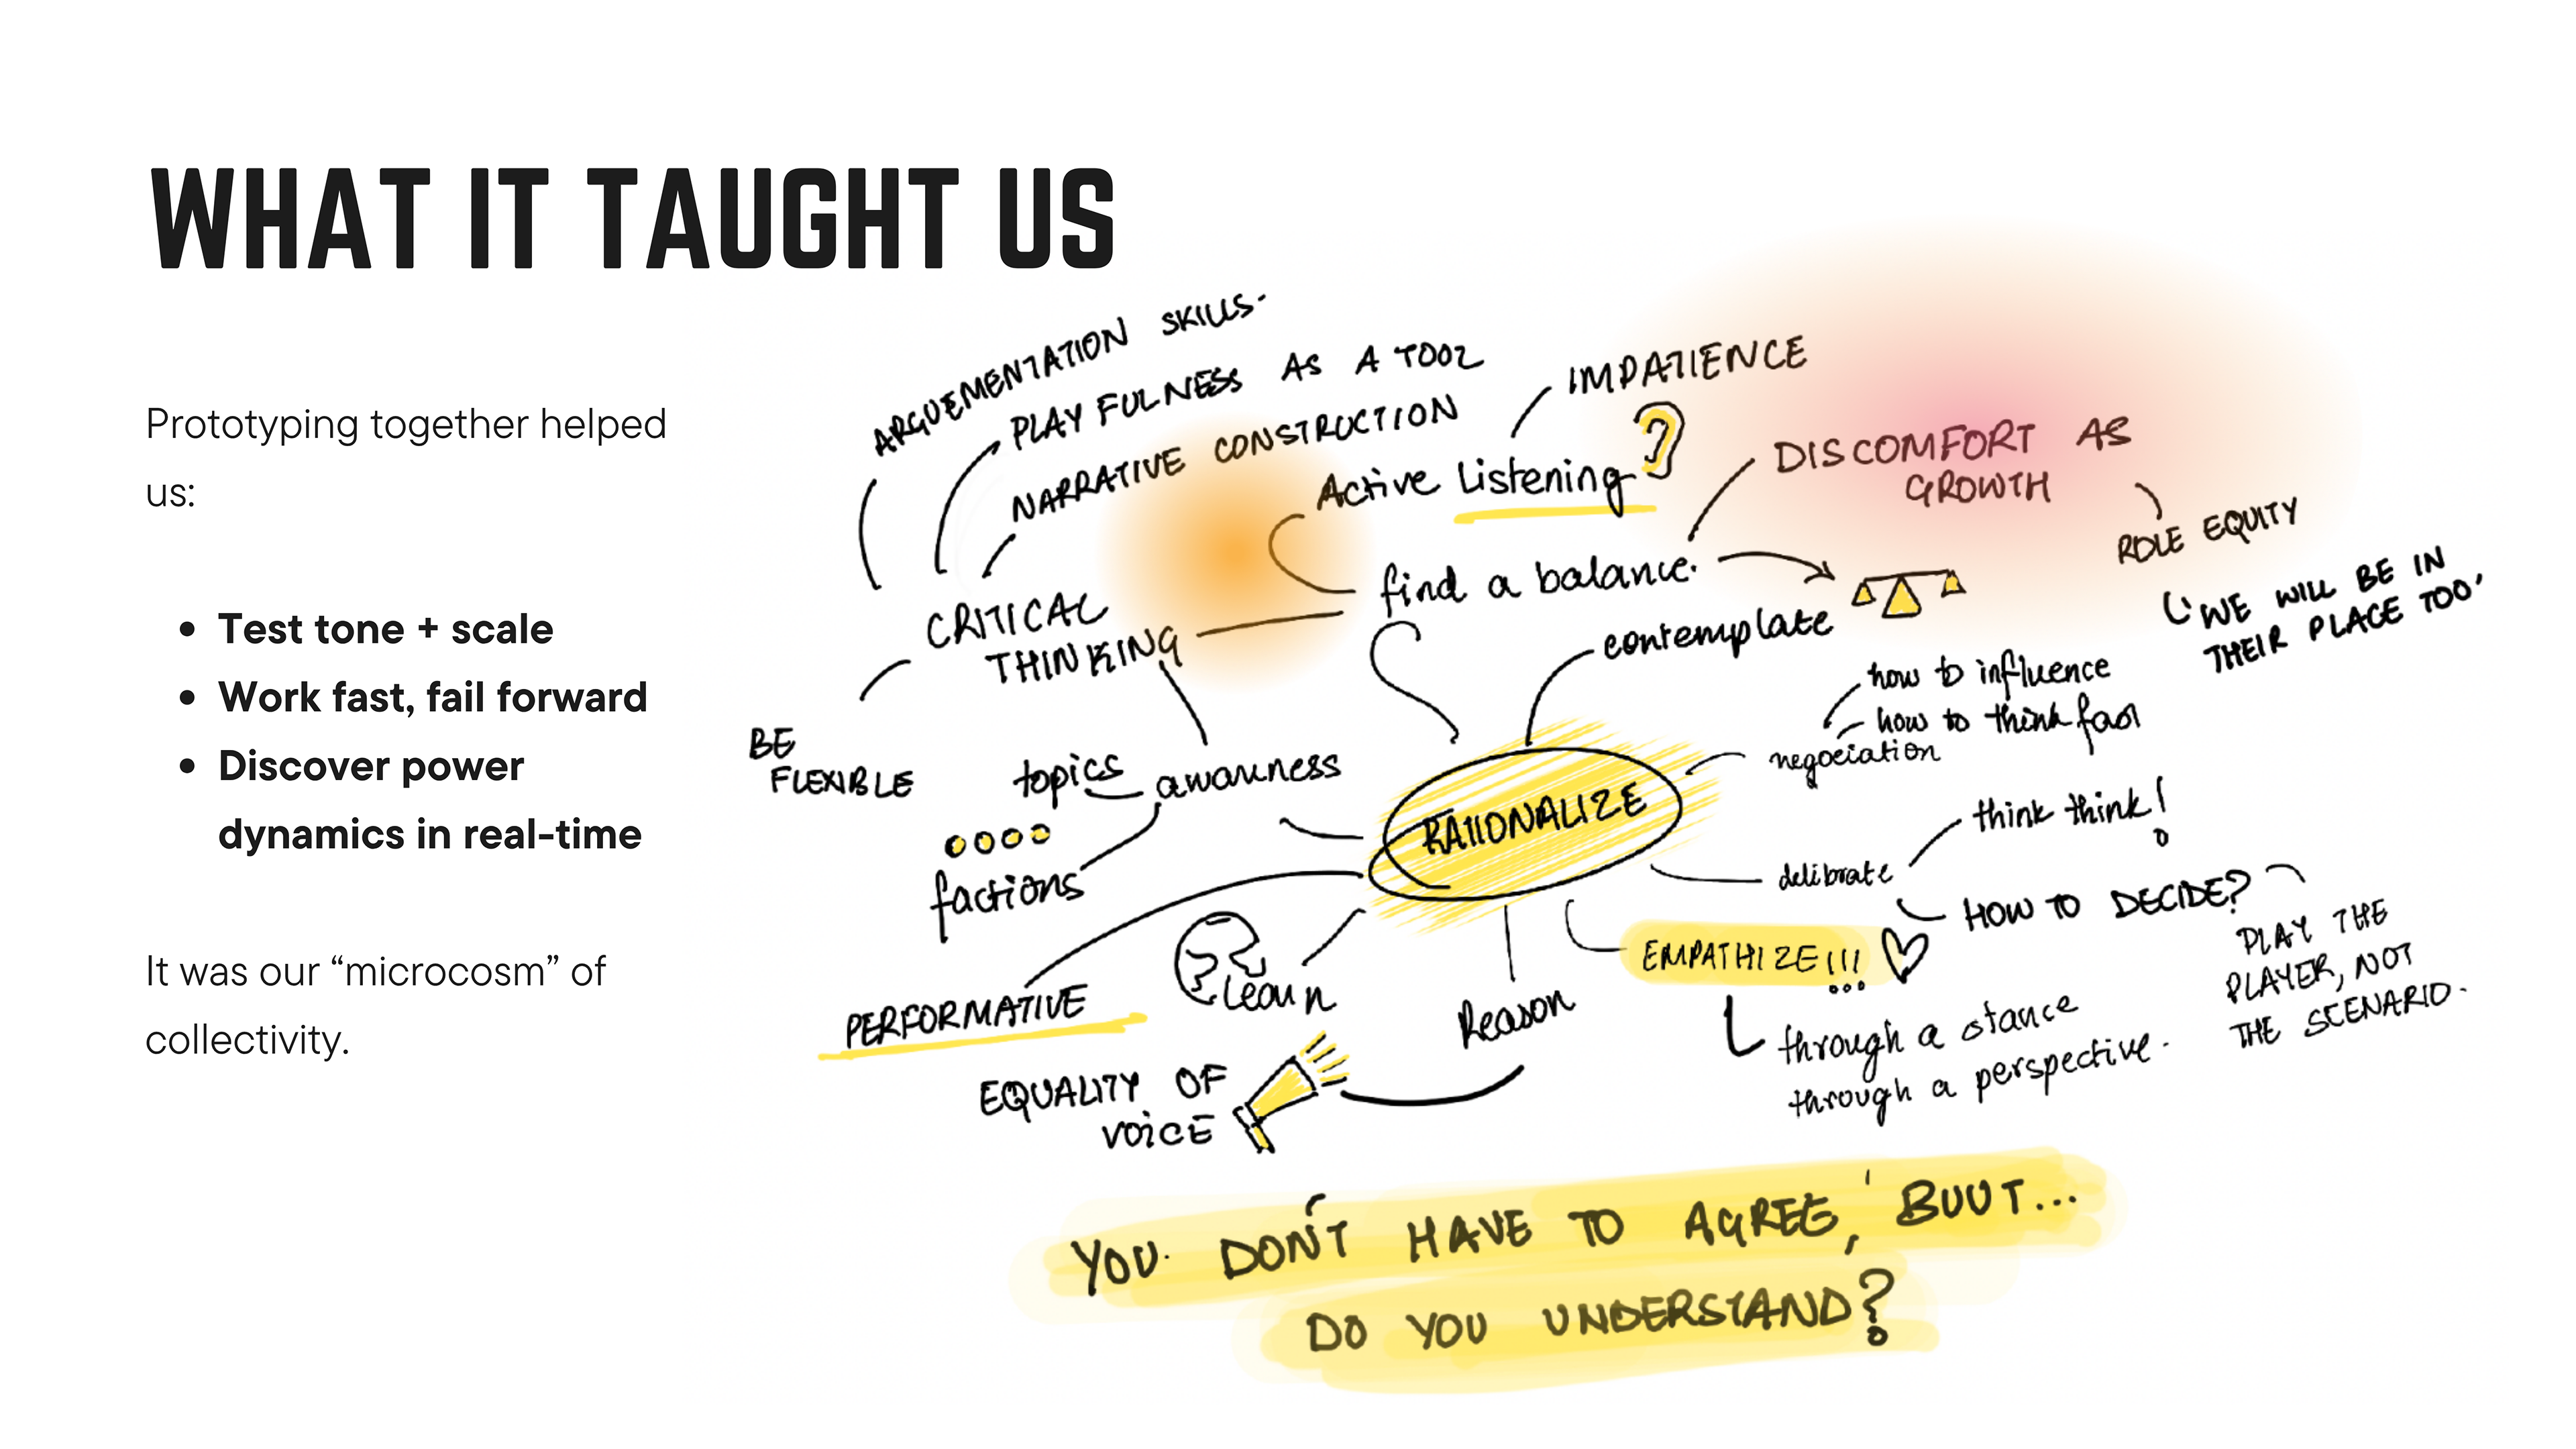 WHAT IT TAUGHT US
Prototyping together helped
us:
• Test tone + scale
• Work fast, fail forward
• Discover power
dynamics in real-time
It was our “microcosm” of
collectivity.
ARGUEMENTATION SKILLS-
PLAYFULNESS AS A TOOL
NARRATIVE CONSTRUCTION
IMPATIENCE
Active Listening
DISCOMFORT AS
GROWTH
ROLE EQUITY
WE WILL BE IN
THEIR PLACE TOO'
find a balance.
CRITICAL
THINKING
contemplate
how to influence
how to think fast
negociation
BE
FLEXIBLE
topics
awareness
factions
RATIONALIZE
think think!
delibrate
HOW TO DECIDE?
PLAY THE
PLAYER, NOT
THE SCENARIO.
EMPATHIZE!!!
through a stance
through a perspective.
learn
Reason
PERFORMATIVE
EQUALITY OF
VOICE
YOU DON'T HAVE TO AGREE, BUUT...
DO YOU UNDERSTAND?